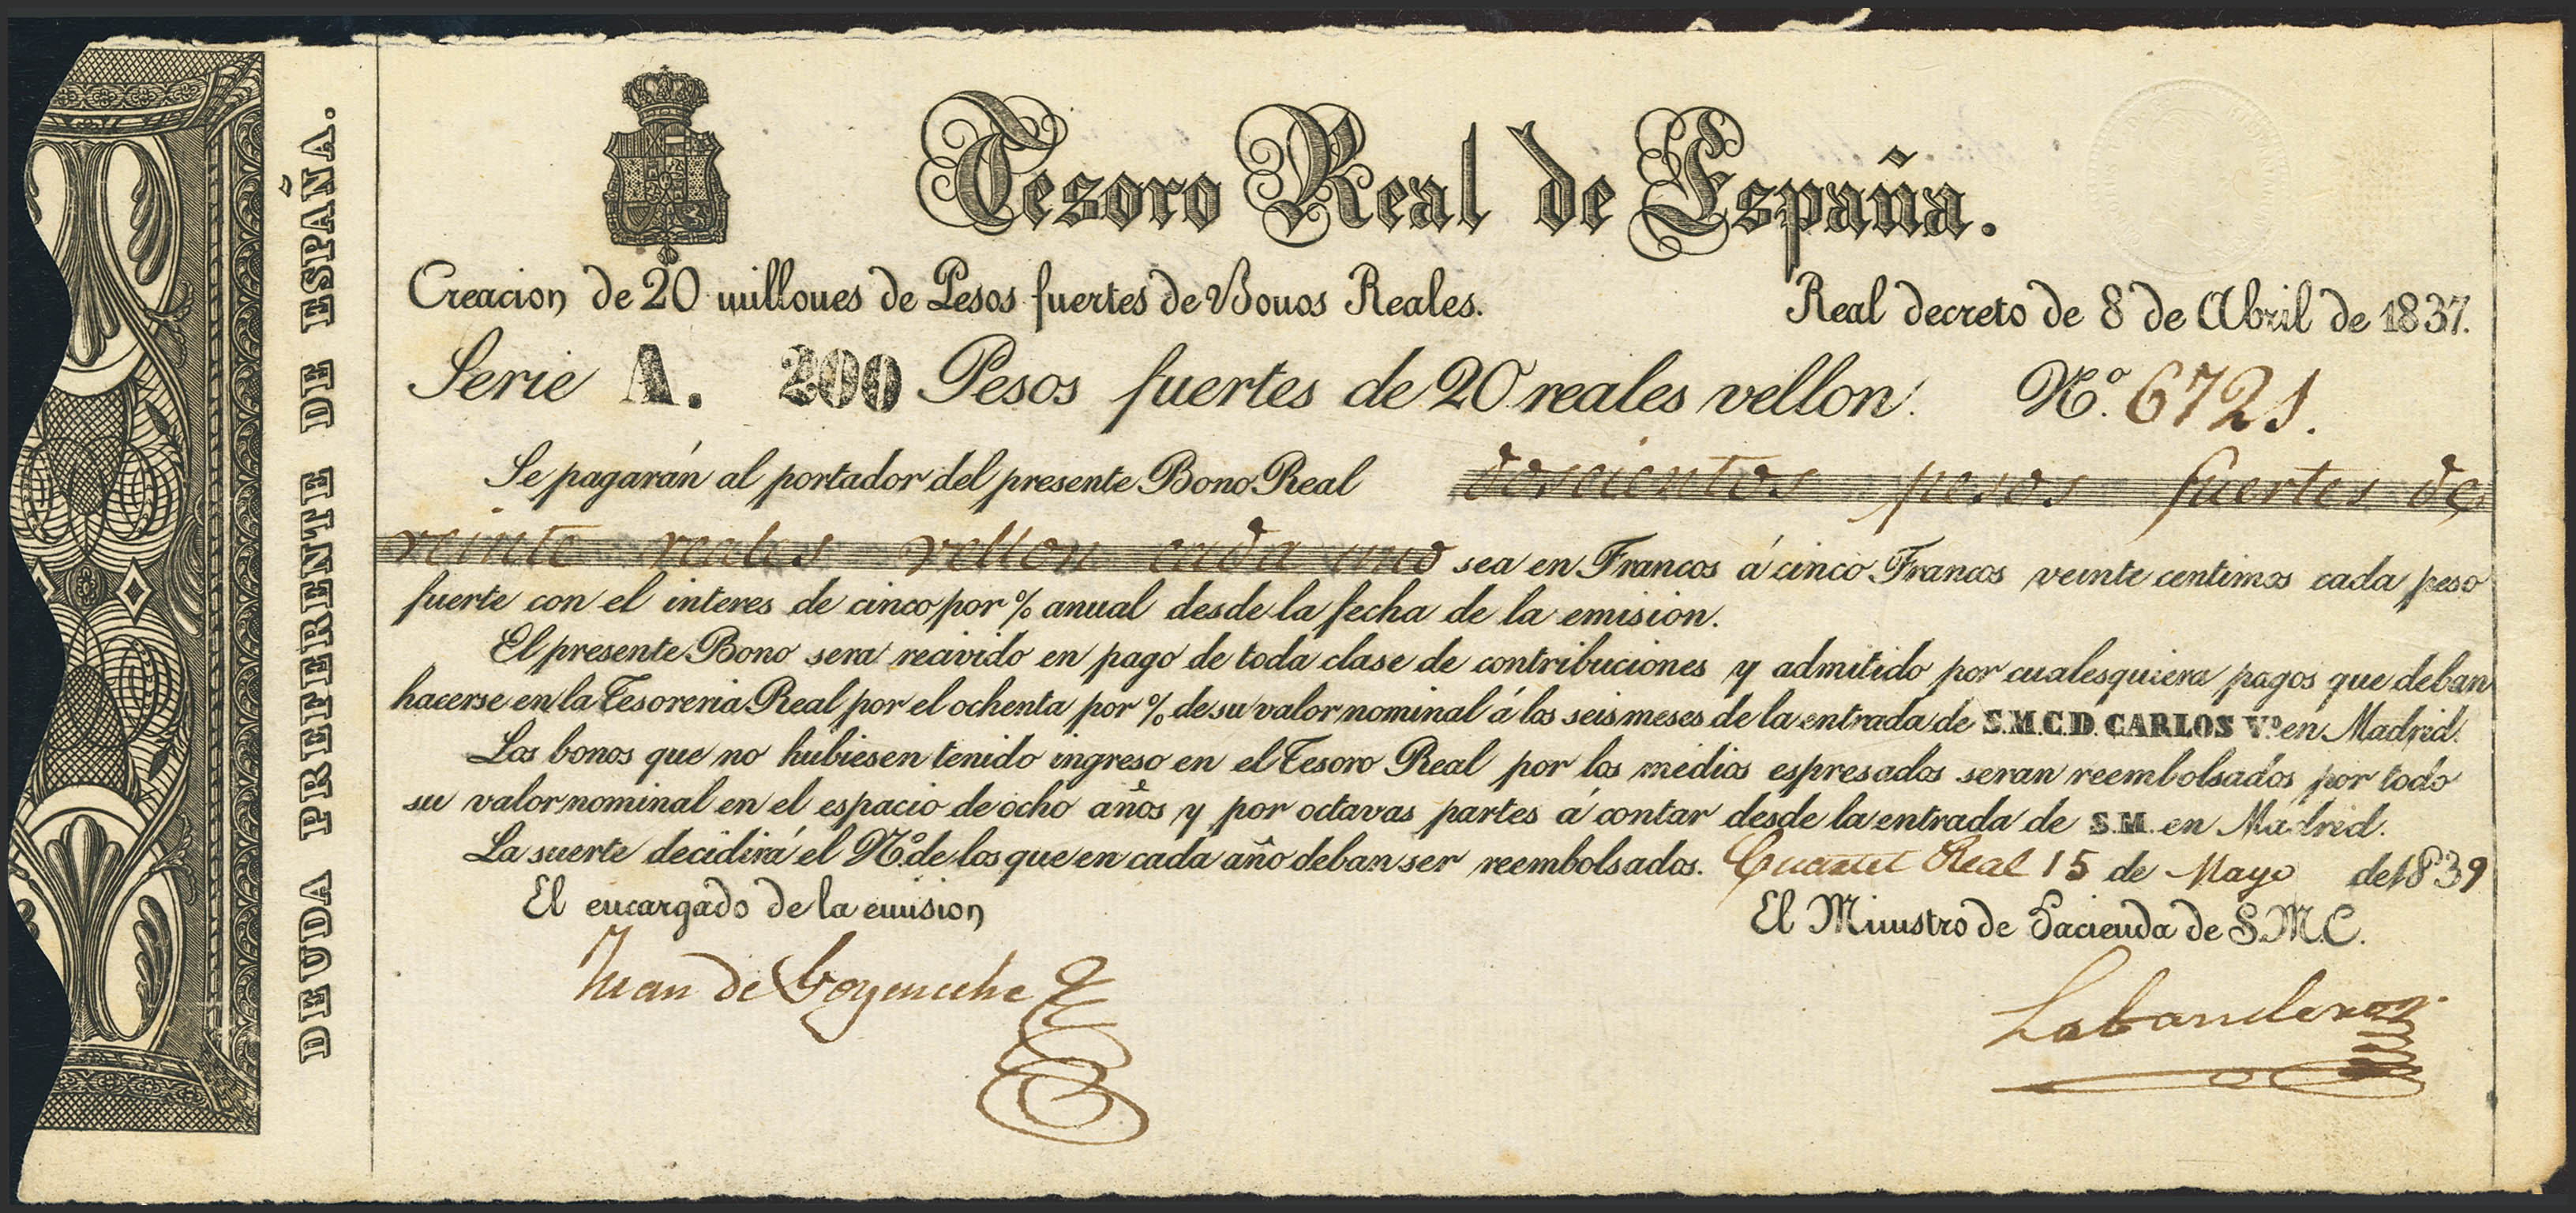 DEUDA PREFERENTE DE ESPAÑA.
Tesoro Real de España.
Creacion de 20 millones de Pesos fuertes de Bonos Reales.
Real decreto de 8 de Abril de 1837.
Serie A. 200 Pesos fuertes de 20 reales vellon. Nº. 6721.
Se pagarán al portador del presente Bono Real doscientos pesos fuertes de
veinte reales vellon cada uno sea en Francos á cinco Francos veinte centimos cada peso
fuerte con el interes de cinco por % anual desde la fecha de la emision.
El presente Bono sera recivido en pago de toda clase de contribuciones y admitido por cualesquiera pagos que deban
hacerse en la Tesoreria Real por el ochenta por % de su valor nominal á los seis meses de la entrada de S.M.C.D. CARLOS Vº. en Madrid.
Los bonos que no hubiesen tenido ingreso en el Tesoro Real por los medios espresados seran reembolsados por todo
su valor nominal en el espacio de ocho años y por octavas partes á contar desde la entrada de S.M. en Madrid.
La suerte decidirá el Nº. de los que en cada año deban ser reembolsados. Cuartel Real 15 de Mayo de 1839
El encargado de la emision
El Ministro de Hacienda de S.M.C.
Juan de Goyeneche
Labandero